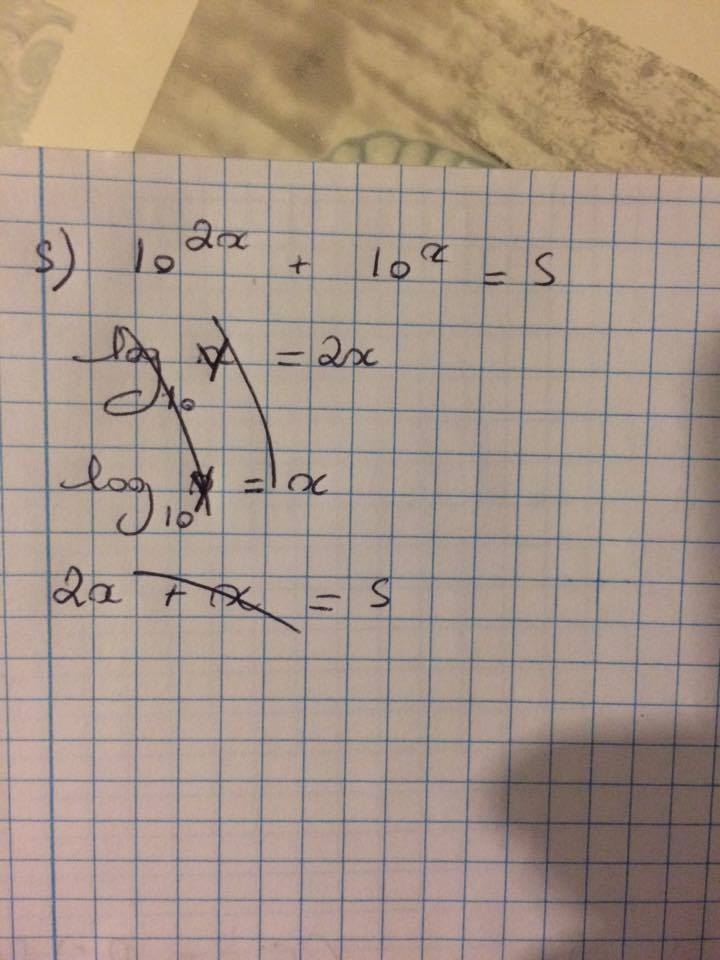 5) 10^2x + 10^x = 5
log10 y = 2x
log10 y = x
2x + x = 5